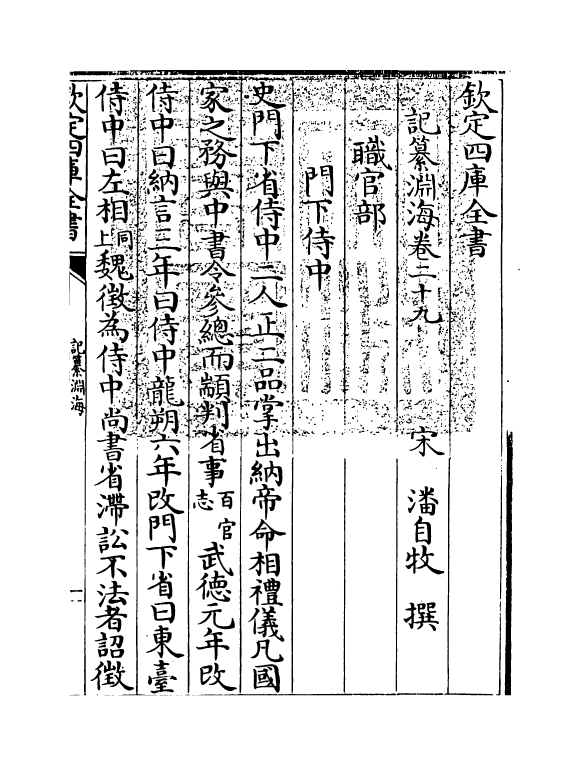 欽定四庫全書
記纂淵海卷二十九
宋 潘自牧 撰
職官部
門下侍中
史門下省侍中二人正二品掌出納帝命相禮儀凡國
家之務與中書令參總而顓判省事百官志武德元年改
侍中曰納言三年曰侍中龍朔六年改門下省曰東臺
侍中曰左相同上魏徵為侍中尚書省滯訟不法者詔徵
欽定四庫全書
記纂淵海
一